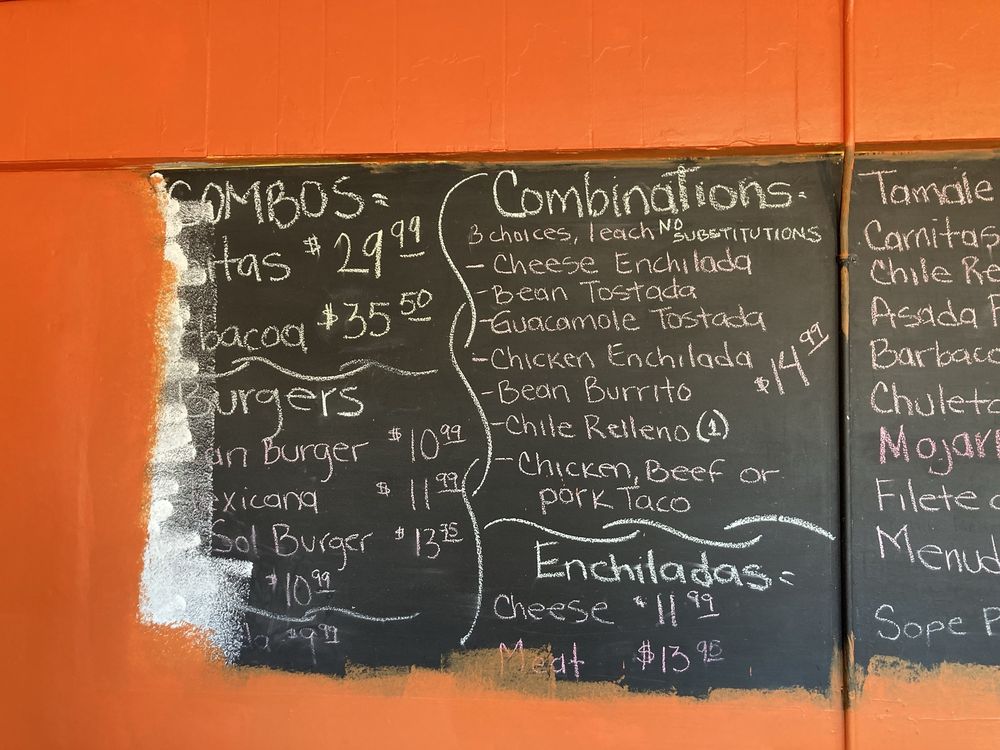 COMBOS=
itas $29.99
bacoa $35.50
Burgers
an Burger $10.99
exicana $11.99
Sol Burger $13.75
$10.99
$9.99
Combinations=
3 choices, 1 each NO SUBSTITUTIONS
- Cheese Enchilada
- Bean Tostada
- Guacamole Tostada
- Chicken Enchilada
- Bean Burrito
- Chile Relleno (1)
- Chicken, Beef or
pork Taco
$14.99
Enchiladas=
Cheese $11.99
Meat $13.95
Tamale
Carnitas
Chile Re
Asada
Barbaco
Chuleta
Mojarr
Filete
Menud
Sope P